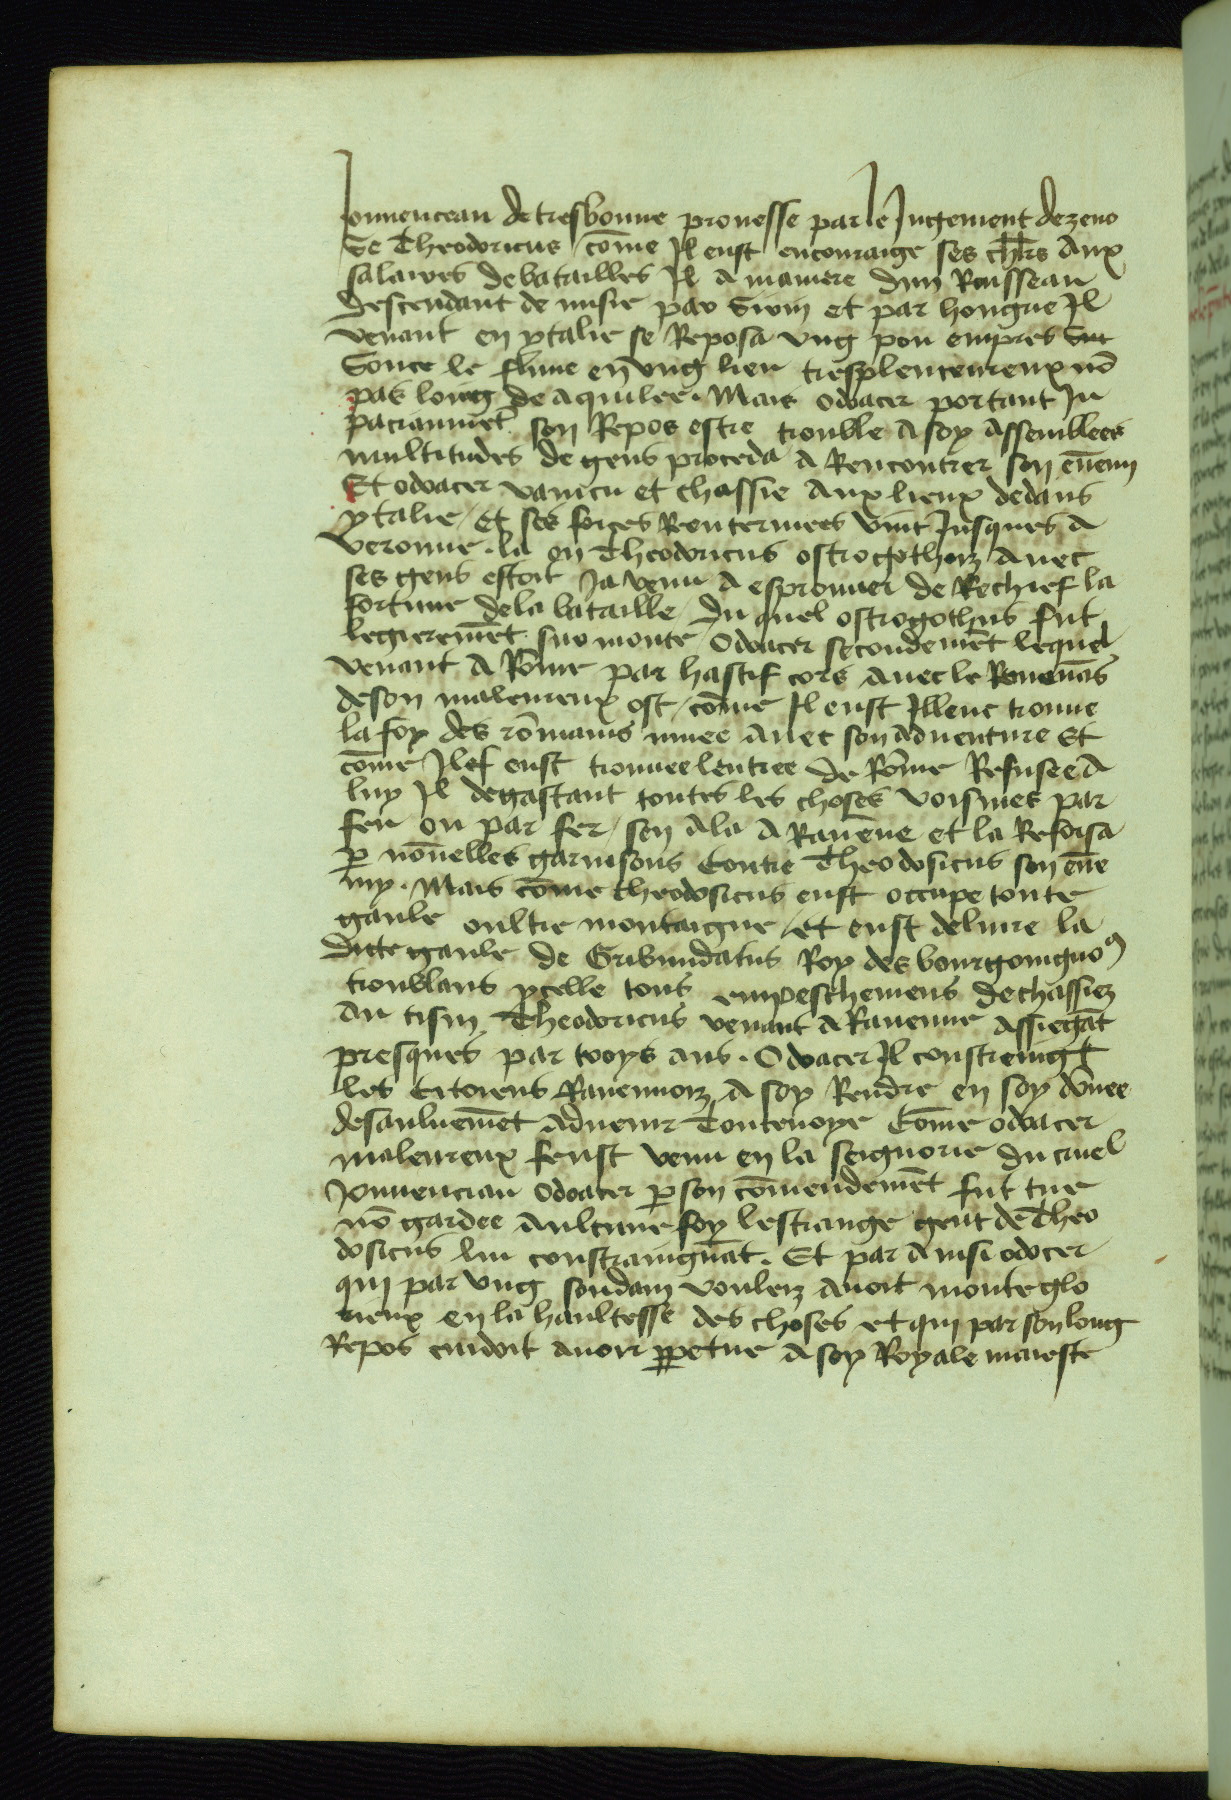 Jouuenceau de tresbonne prouesse par le Jugement de zeno
Se Theodoricus cōme Jl eust encouraige ses ch̄rs Aux
salaires de batailles Jl A maniere dun Ruisseau
descendant de misie par Sirm et par hongrie Jl
venant en ytalie se Reposa vng pou empres
Sonce le flune en vng lieu tresplentereux nō
pas loing de Aquilee. Mais odoacer portant Jn
paciāmēt son Repos estre trouble A soy Assemblees
multitudes de gens proceda A Rencontrer son ēnemy
Et odoacer vaincu et chassie Aux lieux dedans
ytalie / Et ses forces Renterinees vint Jusques A
veronne. la ou Theodoricus ostrogothorz Auec
ses gens estoit Ja venu A esprouuer de Rechief la
fortune de la bataille / Du quel ostrogothus fut
legieremēt surmonte / Odoacer secondemēt lequel
venant A Rōme par hastif cors Auec le Remenās
de son maleureux ost / cōme Jl eust Jlleuc trouue
la foy des rōmains muee Auec son Aduenture Et
cōme Jlec eust trouuee lentree de Rōme Refusee A
luy Jl degastant toutes les choses voisines par
feu ou par fer / sen Ala A Rauēne et la Reforsa
p̱ nouuelles garnisons Contre Theodosicus son ēne
my. Mais cōme theodosicus eust occupe toute
gaule oultre montaigne / et eust deliure la
dicte gaule de Gribundatus Roy des bourgoinguoꝰ
troublans ycelle tous empeschemens dechassiez
Au tisin Theodoricus venant A Rauenne Assiegāt
presques par troys ans. Odoacer Jl constreingt
les Citoiens Rauennorz A soy Rendre en soy dōnee
desauluemēt Aduenir Toutenoye Cōme odoacer
maleureux feust venu en la seignorie du cruel
Jouuenciau odoacer p̱ son cōmendemēt fut tue
nō gardee Aulcune foy lestrange gent de Theo
dosicus lui constraingnāt. Et par Ainsi odocer
qui par vng soudain vouleirz Auoit monte glo
rieux en la haultesse des choses et qui par son long
Repos cuidoit auoir p̱petue A soy Royale maieste